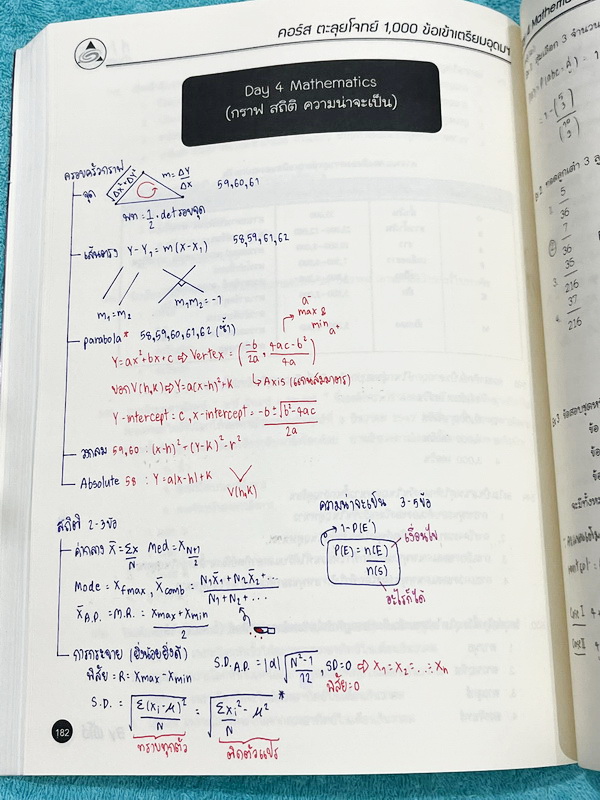 คอร์ส ตะลุยโจทย์ 1,000 ข้อเข้าเตรียมอุดมฯ
Day 4 Mathematics
(กราฟ สถิติ ความน่าจะเป็น)
ครอบครัวกราฟ
จุด √ΔX²+ΔY² m = ΔY/ΔX 59,60,61
พท = 1/2 · det รอบจุด
เส้นตรง Y-Y₁ = m(X-X₁) 58,59,61,62
m₁=m₂ m₁m₂ = -1
parabola* 58,59,60,61,62 (ซ้ำ)
a⁻ max & min a⁺
Y=ax²+bx+c ⇒ Vertex = (-b/2a, 4ac-b²/4a)
บอก V(h,k) ⇒ Y=a(x-h)²+k ↳ Axis (แกนสมมาตร)
Y-intercept = c, x-intercept = -b ± √b²-4ac / 2a
วงกลม 59,60 : (x-h)²+(Y-k)² = r²
Absolute 58 : Y = a|x-h|+k V(h,k)
สถิติ 2-3ข้อ
ค่ากลาง X̄ = Σx/N Med = X N+1/2
Mode = X fmax, X̄comb = N₁X̄₁+N₂X̄₂+... / N₁+N₂+...
X̄A.P. = M.R. = Xmax+Xmin / 2
การกระจาย (ยิ่งน้อยยิ่งดี)
พิสัย = R = Xmax - Xmin
S.D.A.P. = |d| √N²-1/12, SD=0 ⇒ X₁=X₂=...=Xn
พิสัย=0
S.D. = √Σ(xᵢ-μ)²/N = √Σxᵢ²/N - μ² *
ทราบทุกตัว ติดตัวแปร
ความน่าจะเป็น 3-5ข้อ
1-P(E')
P(E) = n(E)/n(S)
เงื่อนไข
อะไรก็ได้
182
5
36
7
36
35
216
37
216